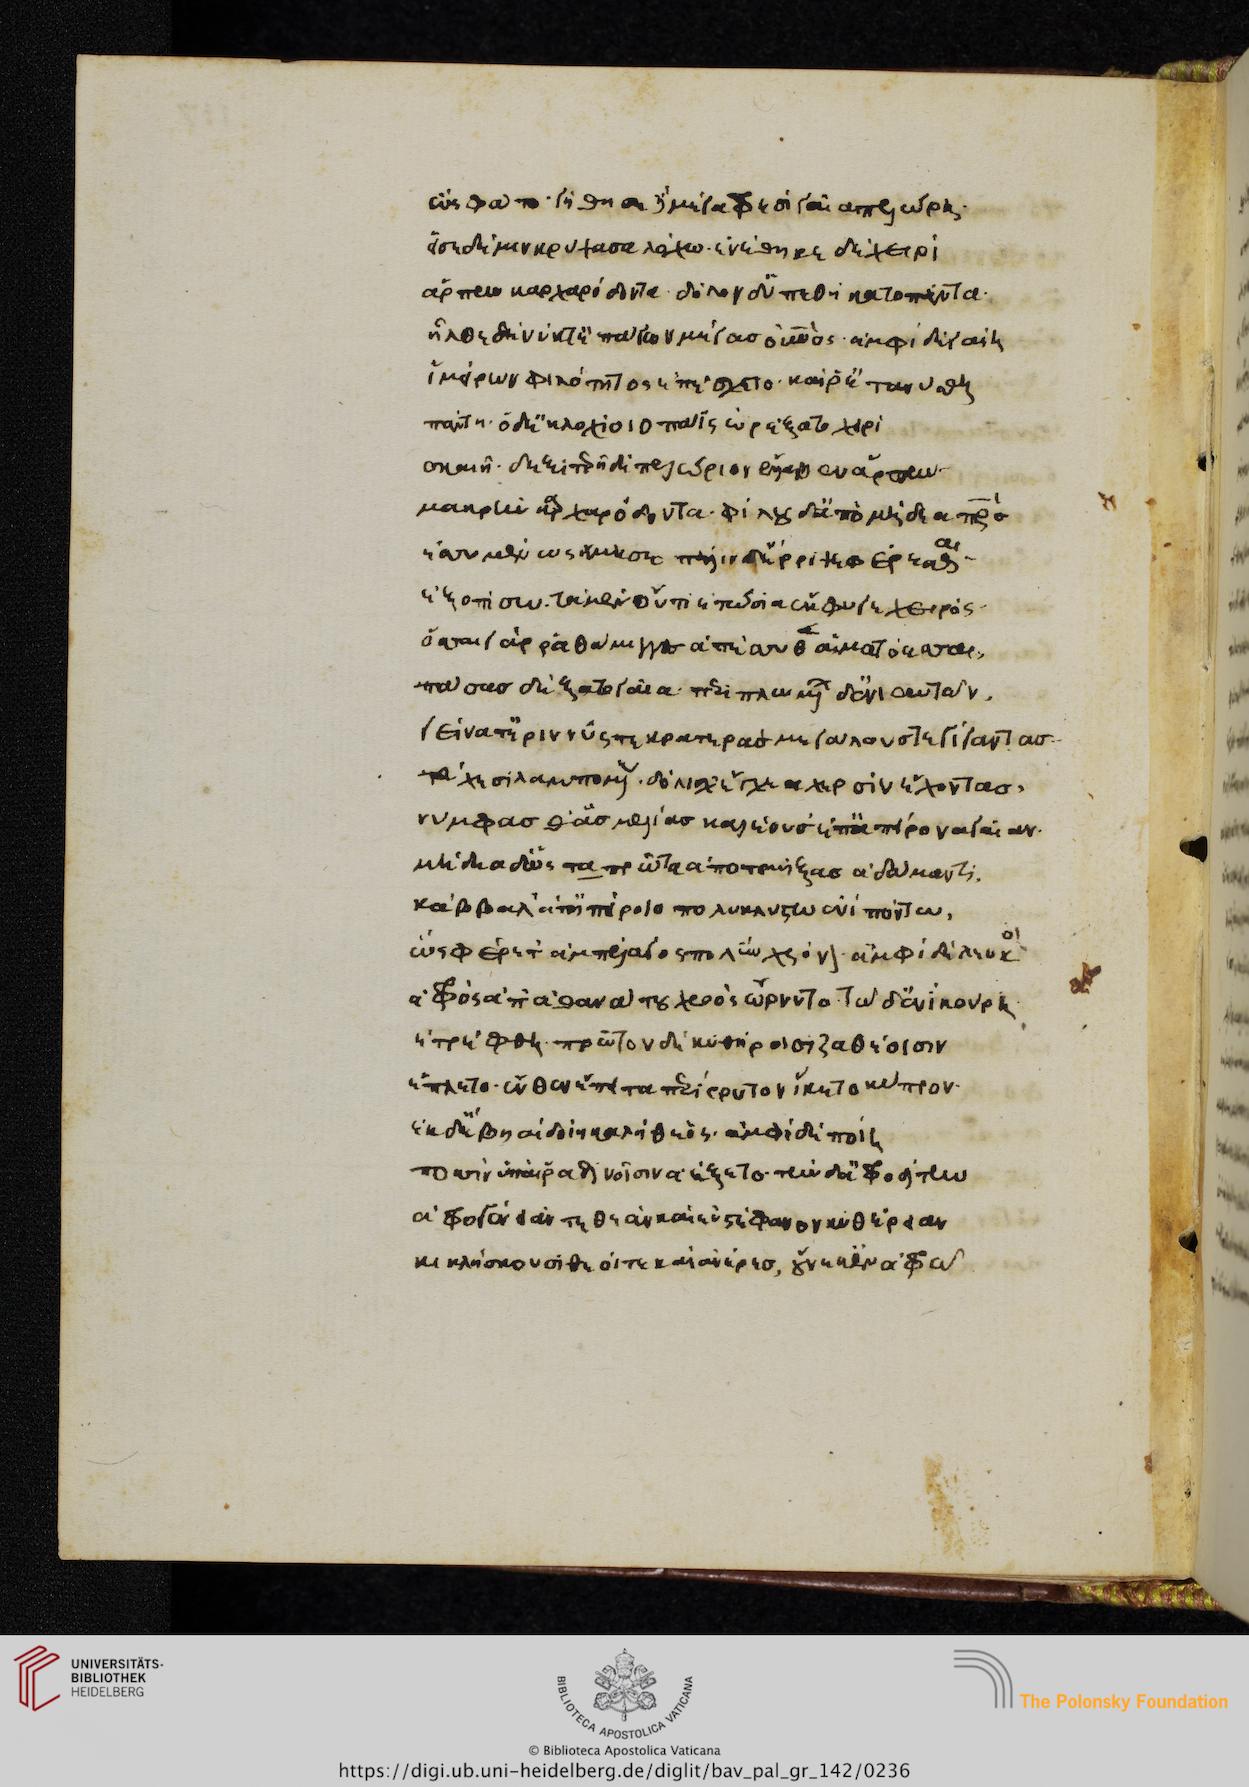 ὣς φάτο· γήθησε δὲ μέγα φρεσὶ γαῖα πελώρη·
εἷσε δέ μιν κρύψασα λόχω· ἐνέθηκε δὲ χειρὶ
ἅρπην καρχαρόδοντα· δόλον δ' ὑπεθήκατο πάντα·
ἦλθε δὲ νύκτ' ἐπάγων μέγας οὐνὸς· ἀμφὶ δὲ γαίη
ἱμείρων φιλότητος ἐπέσχετο· καί ῥ' ἐτανύσθη
πάντη· ὁ δ' ἐκ λοχίοιο πάϊς ὠρέξατο χειρὶ
σκαιῆ· δεξιτερῆ δὲ πελώριον ἔλλαβεν ἅρπην·
μακρὴν καρχαρόδοντα· φίλου δ' ἀπὸ μήδεα πρς
ἐσσυμένως ἤμησε· πάλιν δ' ἔρριψε φέρεσθαι
ἐξοπίσω. τὰ μὲν οὔτι ἐτώσια ἔκφυγε χειρός·
ὅσσαι γὰρ ῥαθάμιγγες ἀπέσσυθεν αἱματόεσσαι,
πάσας δέξατο γαῖα· περιπλομένων δ' ἐνιαυτῶν,
γείνατ' ἐρινῦς τε κρατερὰς μεγάλους τε γίγαντας
τεύχεσι λαμπομένους· δολίχ' ἔγχεα χερσὶν ἔχοντας,
νύμφας θ' ἃς μελίας καλέουσ' ἐπ' ἀπείρονα γαῖαν·
μήδεα δ' ὡς τὰ πρῶτα ἀποτμήξας ἀδάμαντι,
κάββαλ' ἀπ' ἠπείροιο πολυκλύστω ἐνὶ πόντω,
ὣς φέρετ' ἀμπέλαγος πολὺν χρόνον· ἀμφὶ δὲ λευκὸς
ἀφρὸς ἀπ' ἀθανάτου χροὸς ὤρνυτο· τῶ δ' ἔνι κούρη
ἐτρέφθη· πρῶτον δὲ κυθήροισι ζαθέοισιν
ἔπλετο· ἔνθεν ἔπειτα περίρρυτον ἵκετο κύπρον·
ἐκ δ' ἔβη αἰδοίη καλὴ θεὸς· ἀμφὶ δὲ ποίη
ποσσὶν ὕπαι ῥαδινοῖσιν ἀέξετο· τὴν δ' ἀφροδίτην
ἀφρογένειάν τε θεὰν καὶ εὐστέφανον κυθέρειαν
κικλήσκουσι θεοί τε καὶ ἀνέρες, οὕνεκ' ἐν ἀφρῶ
UNIVERSITÄTS-
BIBLIOTHEK
HEIDELBERG
BIBLIOTECA APOSTOLICA VATICANA
The Polonsky Foundation
© Biblioteca Apostolica Vaticana
https://digi.ub.uni-heidelberg.de/diglit/bav_pal_gr_142/0236